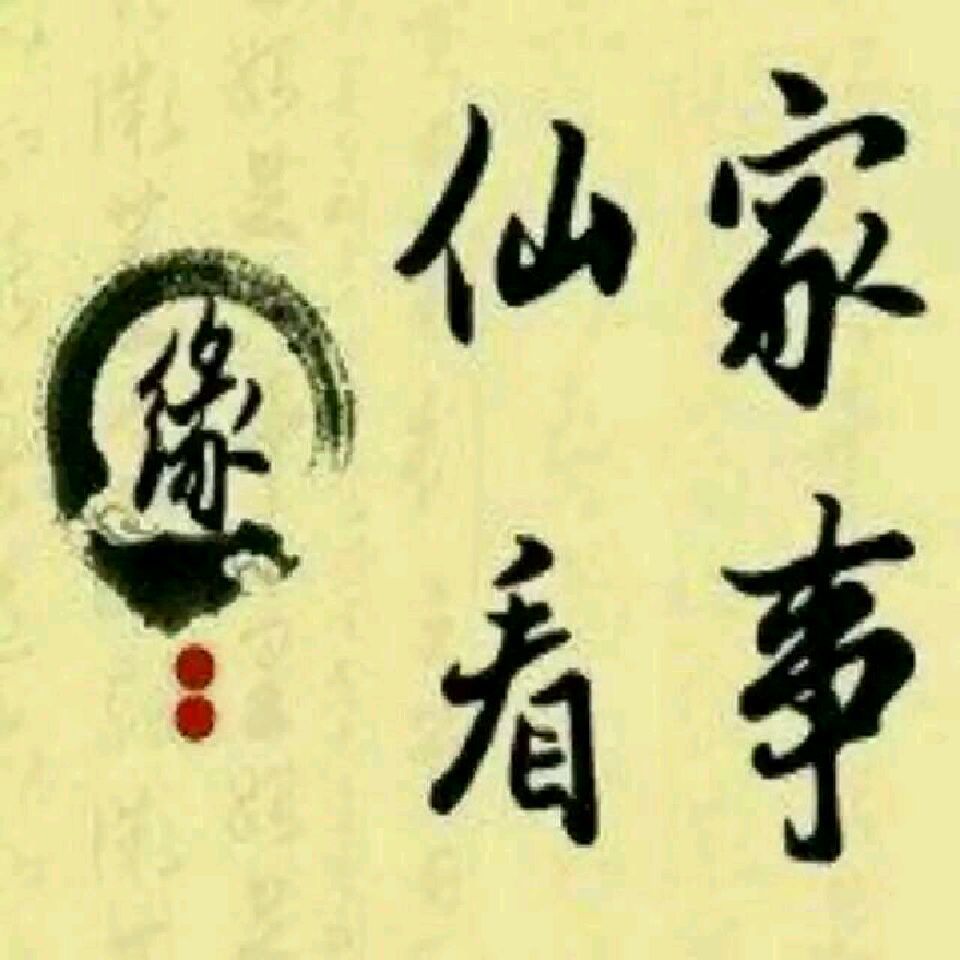 仙家
看事
缘